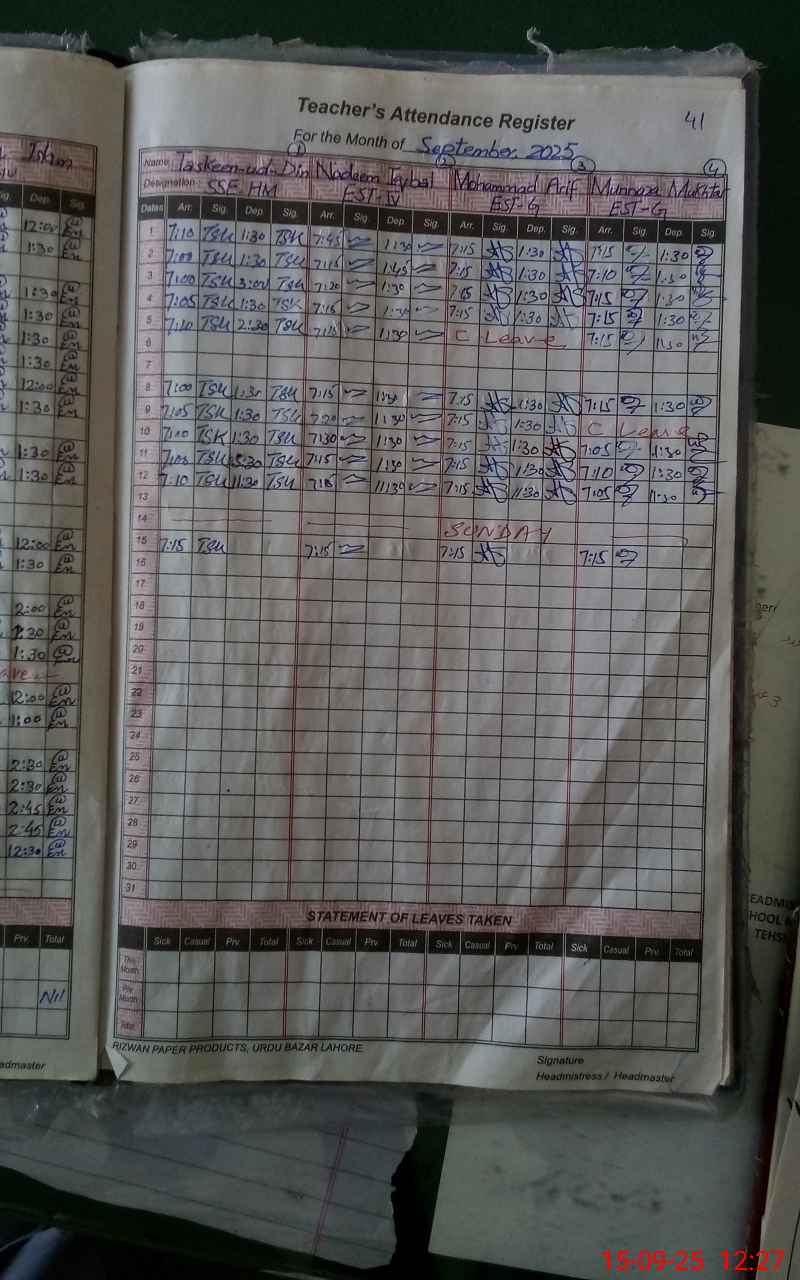 Teacher's Attendance Register
41
For the Month of September 2025
Name: Taskeen-ud-Din 1 Nadeem Iqbal 2 Mohammad Arif 3 Munnaza Mukhtar 4
Designation: SSE HM EST-IV EST-G EST-G
Dates Arr. Sig. Dep. Sig. Arr. Sig. Dep. Sig. Arr. Sig. Dep. Sig. Arr. Sig. Dep. Sig.
1 7:10 TSK 1:30 TSK 7:45 1:30 7:15 1:30 7:15 1:30
2 7:00 TSK 1:30 TSK 7:15 1:45 7:15 1:30 7:10 1:30
3 7:00 TSK 3:00 TSK 7:20 1:30 7:15 1:30 7:15 1:30
4 7:05 TSK 1:30 TSK 7:15 1:30 7:15 1:30 7:15 1:30
5 7:10 TSK 2:30 TSK 7:15 1:30 C Leave 7:15 1:30
6
7
8 7:00 TSK 1:30 TSK 7:15 7:15 1:30 7:15 1:30
9 7:05 TSK 1:30 TSK 7:20 1:30 7:15 1:30 C Leave
10 7:10 TSK 1:30 TSK 7:30 1:30 7:15 1:30 7:05 1:30
11 TSK TSK 7:15 1:30 7:15 1:30 7:10 1:30
12 7:10 TSK 11:30 TSK 7:15 11:30 7:15 11:30 7:05 11:30
13
14 SUNDAY
15 7:15 TSK 7:15 7:15 7:15
16
17
18
19
20
21
22
23
24
25
26
27
28
29
30
31
STATEMENT OF LEAVES TAKEN
Sick Casual Prv. Total Sick Casual Prv. Total Sick Casual Prv. Total Sick Casual Prv. Total
This Month
Prv. Month
Total
RIZWAN PAPER PRODUCTS, URDU BAZAR LAHORE
Signature
Headmistress / Headmaster
Dep. Sig.
12:00
1:30
1:30
1:30
1:30
1:30
12:00
1:30
1:30
1:30
12:00
1:30
2:00
1:30
1:30
12:00
1:00
2:30
2:30
2:45
2:45
12:30
Prv. Total
Nil
15-09-25 12:27